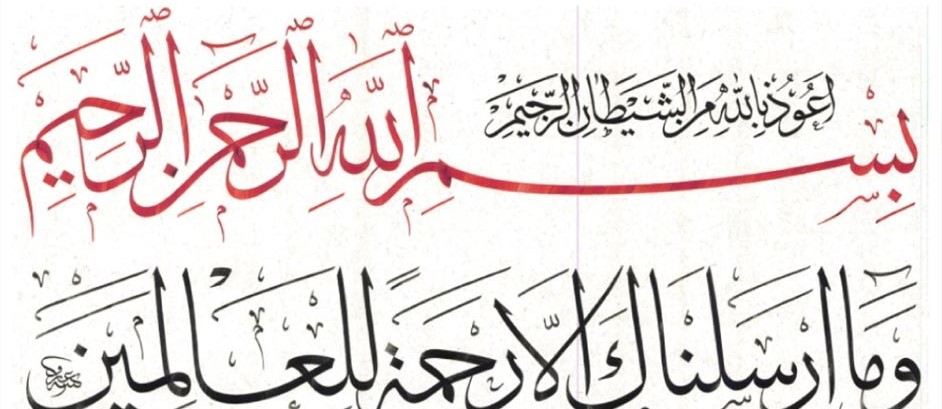 اعوذ بالله من الشيطان الرجيم
بسم الله الرحمن الرحيم
وما ارسلناك الا رحمة للعالمين